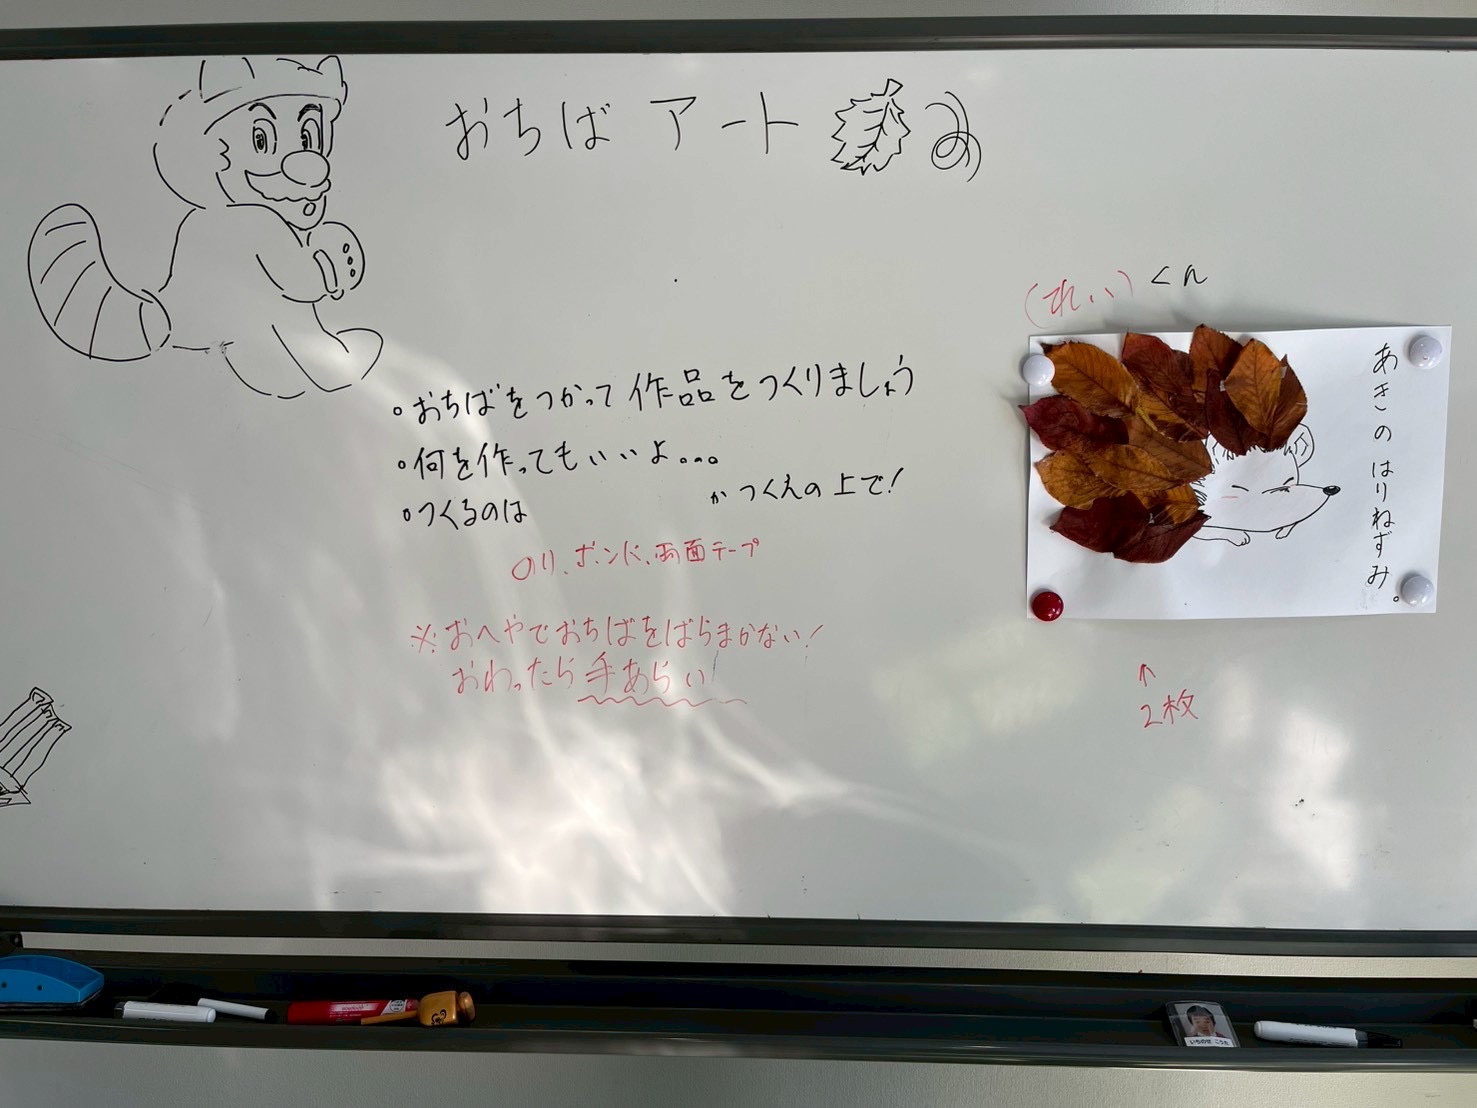 おちば アート
・おちばをつかって作品をつくりましょう
・何を作ってもいいよ...
・つくるのは かつくえの上で!
のり、ボンド、両面テープ
※おへやでおちばをばらまかない!
おわったら手あらい!
(れい)くん
あきのはりねずみ。
↑
2枚